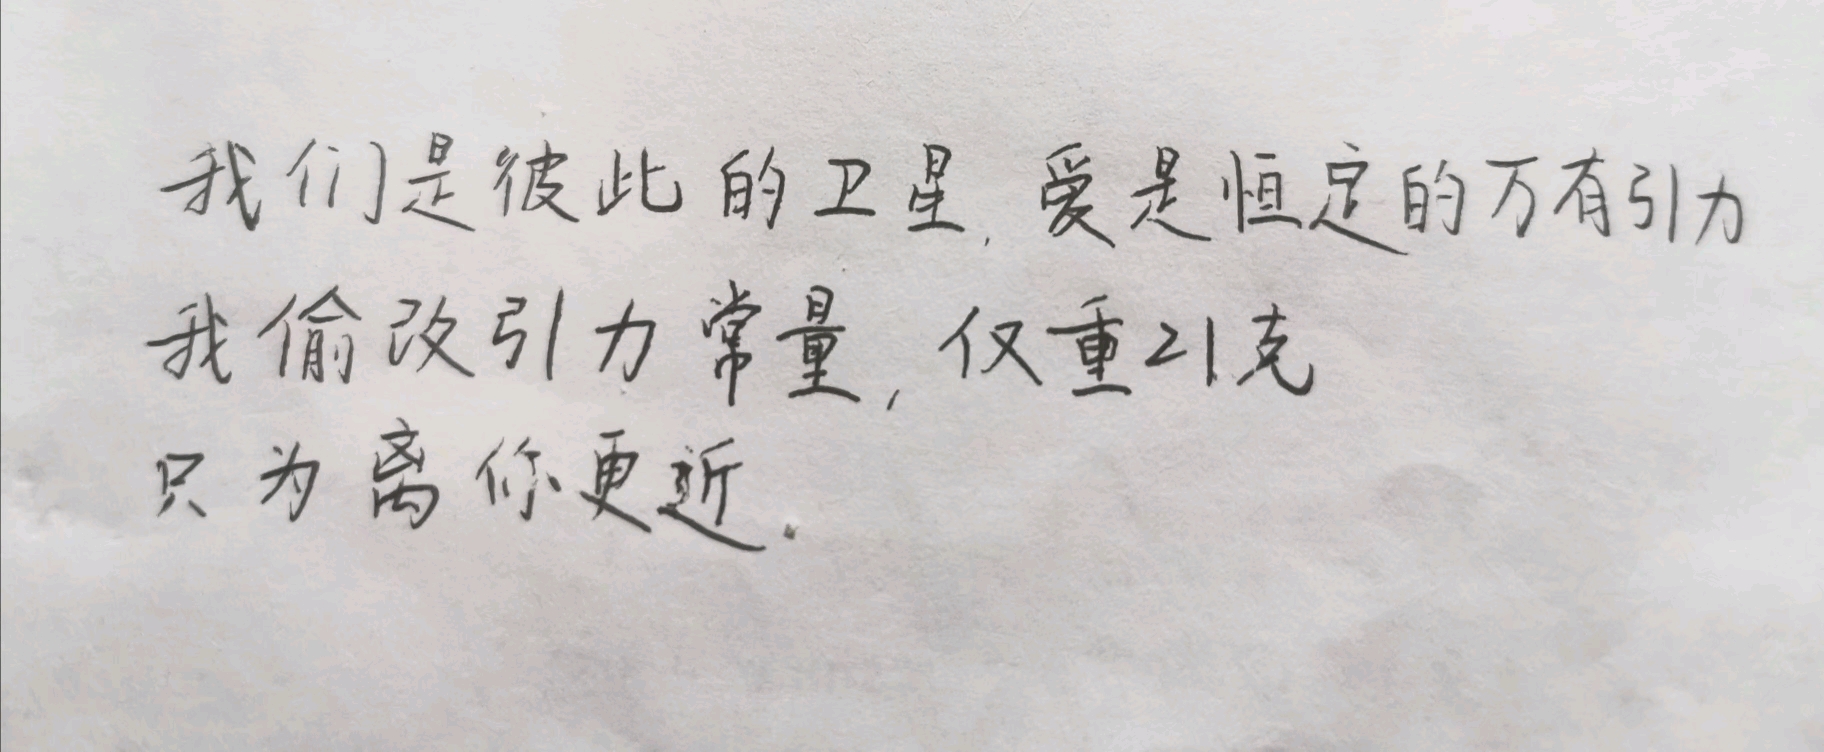 我们是彼此的卫星,爱是恒定的万有引力
我偷改引力常量,仅重21克
只为离你更近.